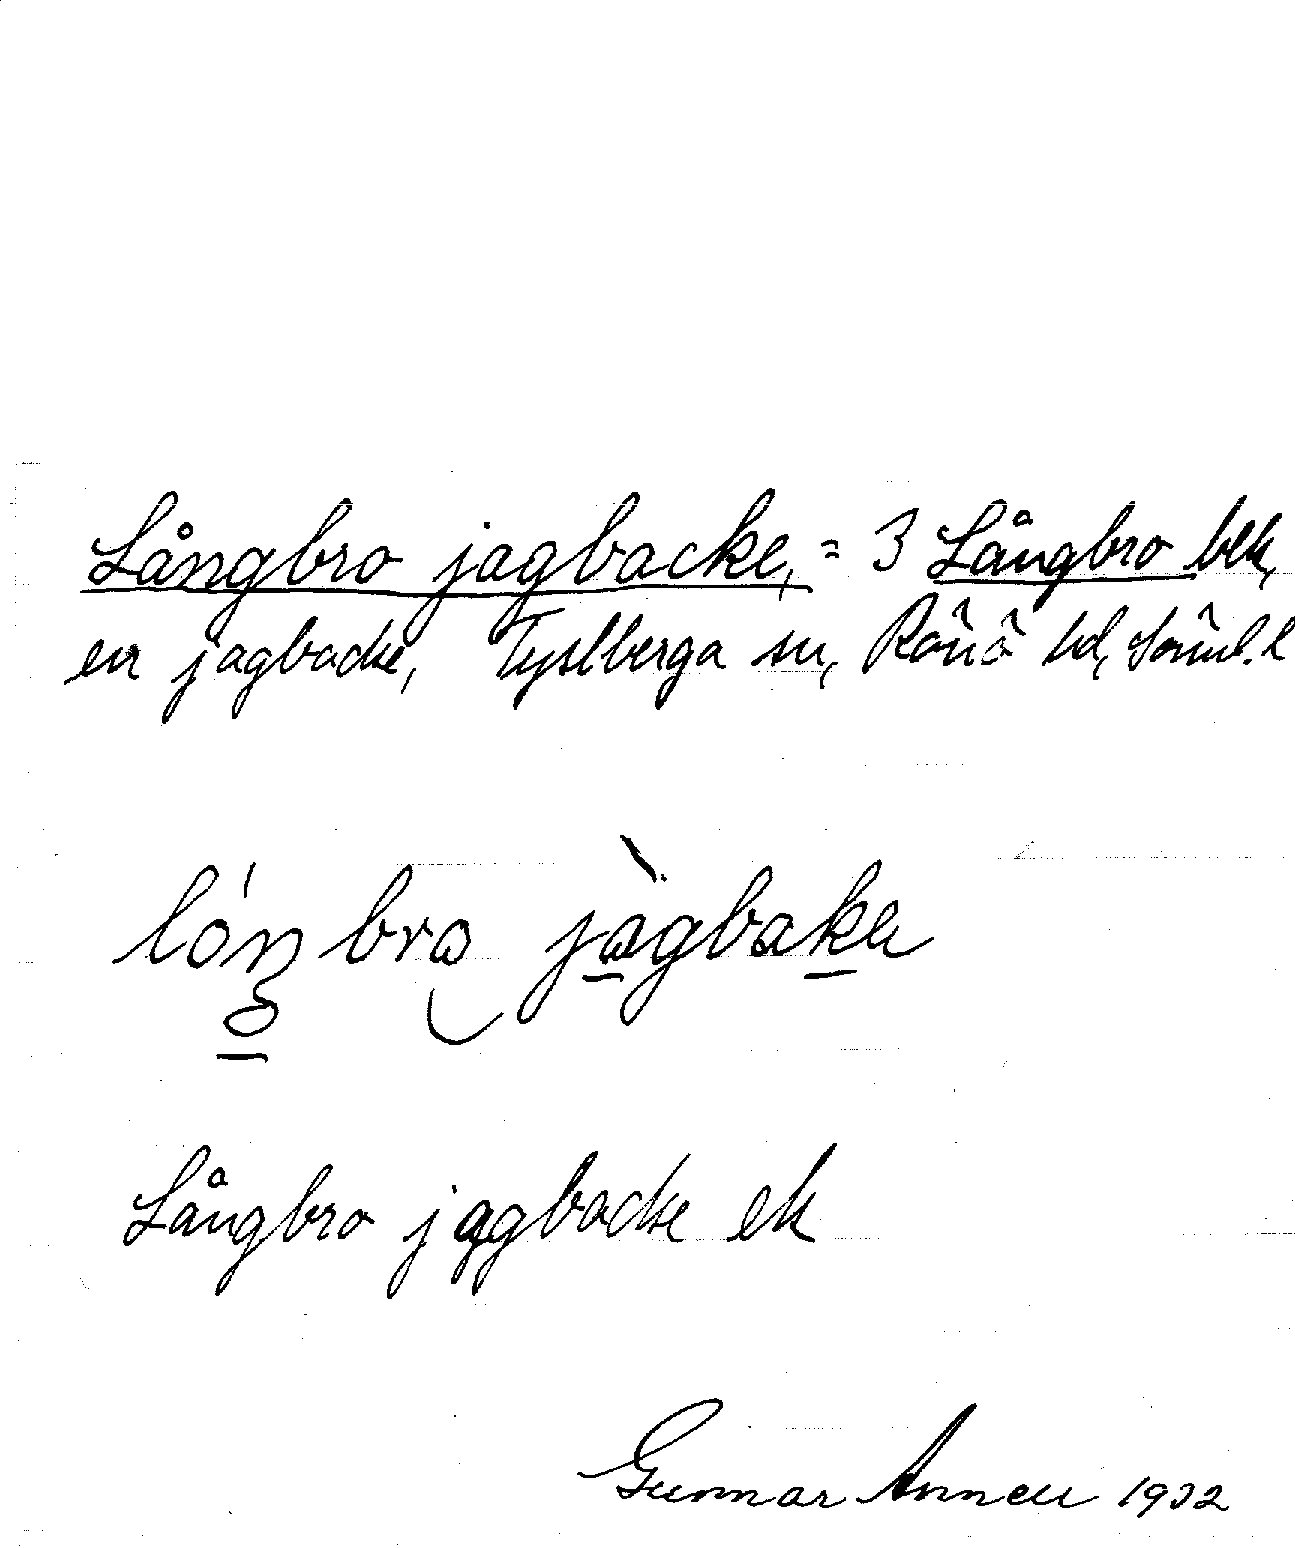 Långbro jagbacke, = 3 Långbro blk,
en jagbacke, Tystberga sn, Rönö hd, Söml. l
lóŋbro jàgbaka
Långbro jagbacke ek
Gunnar 1932